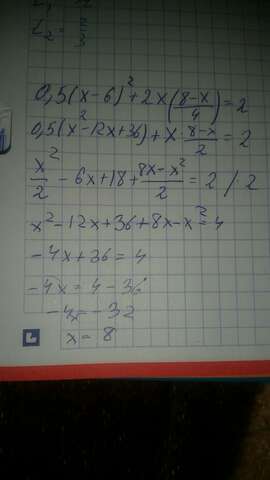 0,5(x-6)² + 2x(8-x/4) = 2
0,5(x²-12x+36) + x·8-x/2 = 2
x²/2 - 6x+18+8x-x²/2 = 2 / 2
x²-12x+36+8x-x²=4
-4x+36 = 4
-4x = 4-36
-4x=-32
x = 8